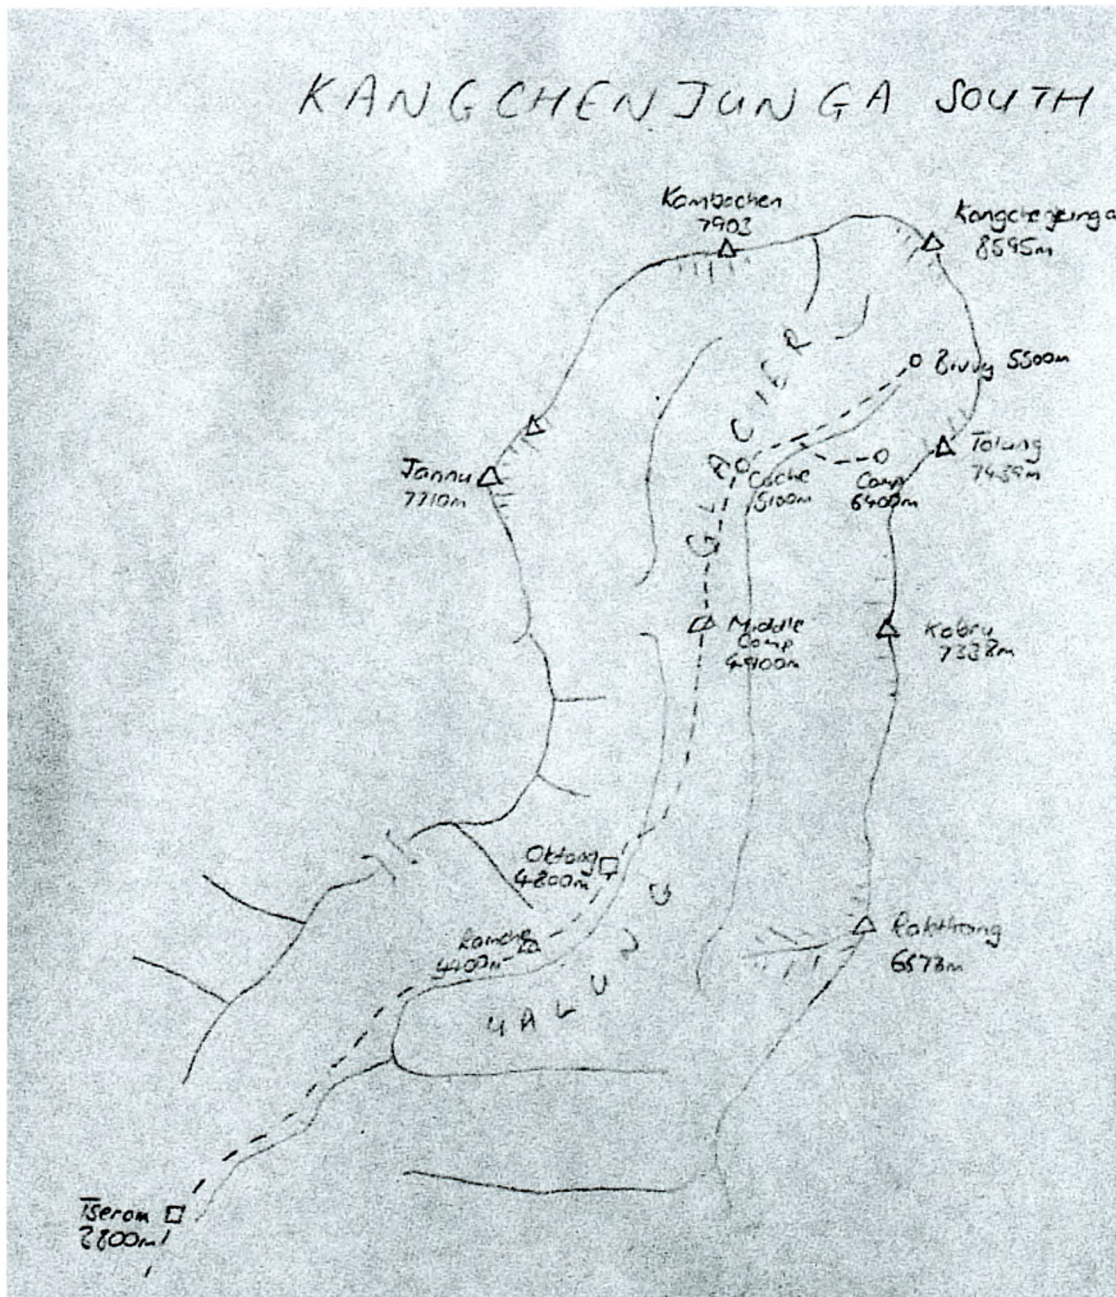 KANGCHENJUNGA SOUTH
Kambachen
7903
Kangchenjunga
8595m
Bivvy 5500m
Tolung
7439m
Jannu
7710m
Cache
5100m
Camp
6400m
GLACIER
Middle
Camp
4900m
Kabru
7338m
Oktang
4800m
Ramche
4400m
Rakthong
6573m
YALUNG
Tseram